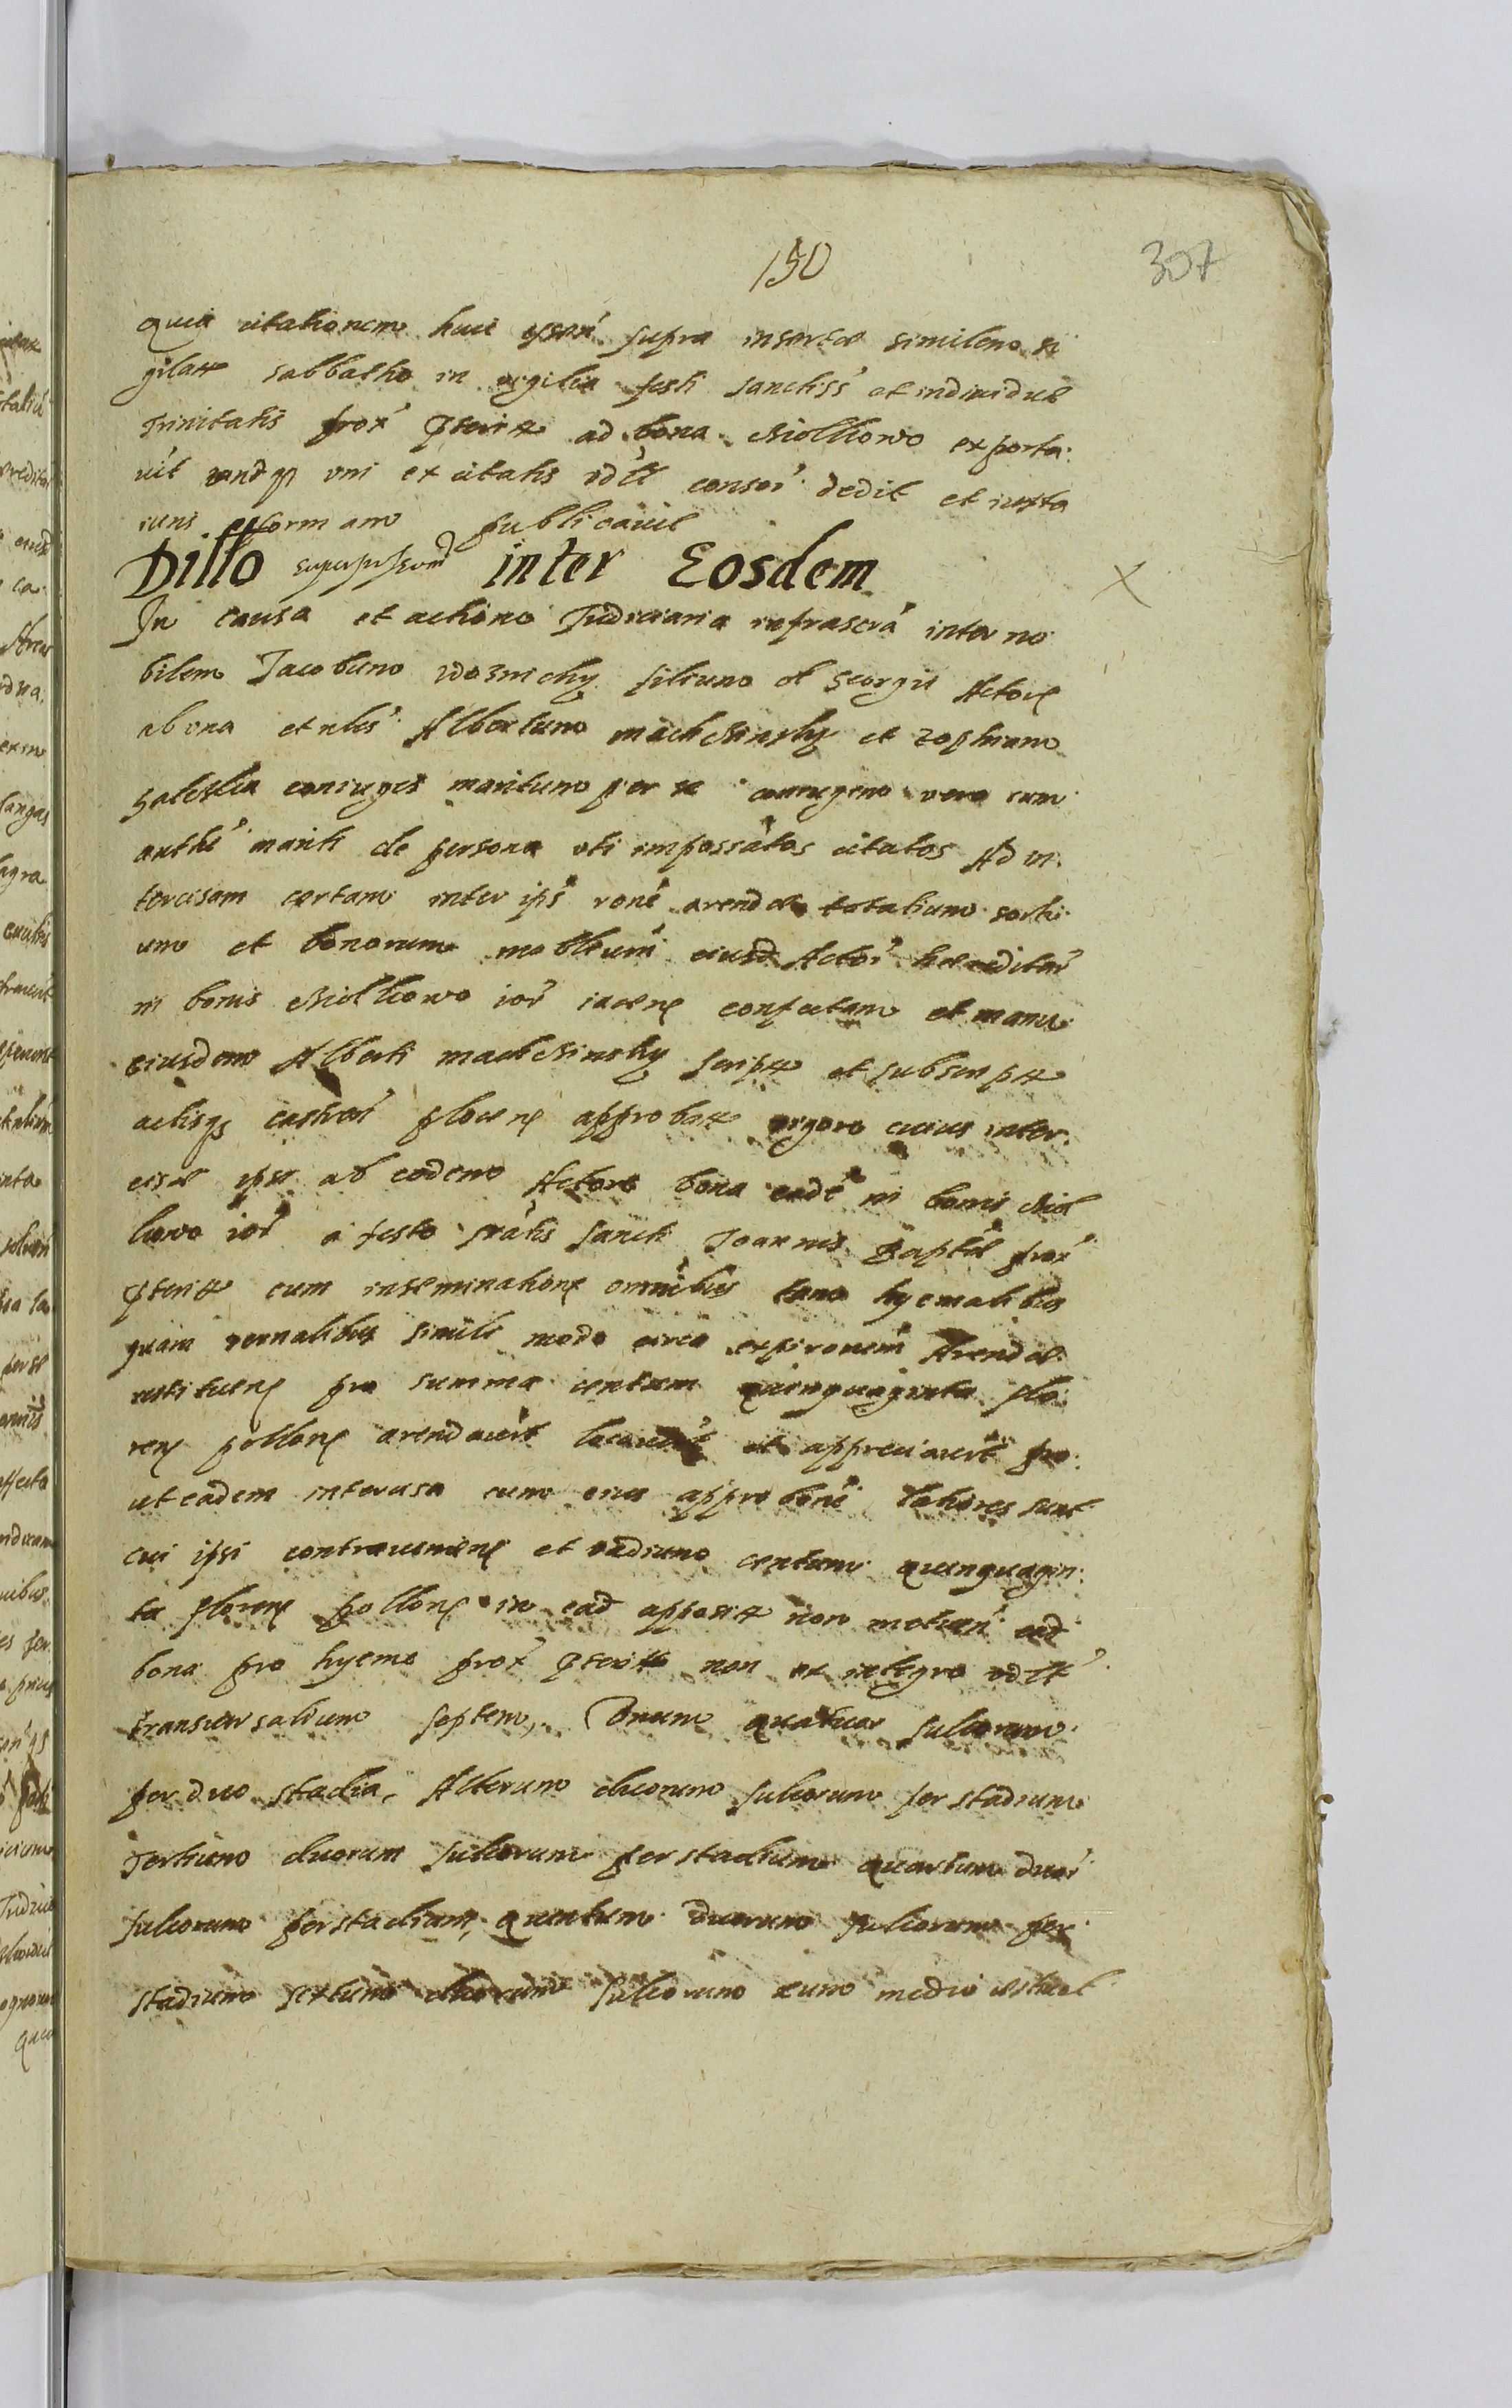 150
307
quia citationem huic ipsar supra insertæ similem si
gilatt sabbatho in vigilia festi sanctiss et individuæ
Trinitatis prox pterit ad bona Miolkowo exporta
vit eandqz uni ex citatis vdtt consor dedit et iuxta
iuris formam publicavit
Dillo inter Eosdem
In causa et actione Judiciaria infrascra inter no
bilem Jacobum Wozniczky filium ol Georgii Actore
ab una et nles Albertum et Zophiam
coniuges maritum per se coniugem vero cum
authe mariti de persona uti impossatos citatos Ad in
tercisam certam inter ipos rone arendæ totalium sorti
um et bonorum mobleum eiusd Actor hæreditar
in bonis Miolkowo iacen confectam et manu
eiusdem Alberti script et subscript
actisqz castren plocen approbatt vigore cuius inter
cisæ ipsi ab eodem Actore bona eade in bonis Miol
kowo a festo sancti Joannis Baptæ prox
pterit cum inseminationi omnibus tam hyemalibus
quam vernalibus simili modo circa expironem Arendæ
restituen pro summa centum quinquaginta flo
ren pollon arendaver locaver et appreciaver pro
ut eadem intercisa cum eius approbone latiores sunt
cui ipsi contravenien et vadium centum quinquagin
ta floren pollon in ead apposit non metuen ead
bona pro hyeme prox pterit non ex integro vdtt
transversalium septem, Unum quatuor sulcorum
per duo stadia, Alterum duorum sulcorum per stadium
Tertium duorum sulcorum per stadium quartum duor
sulcorum per stadium, quintum duorum sulcorum per
stadium sextum duorum sulcorum cum medio